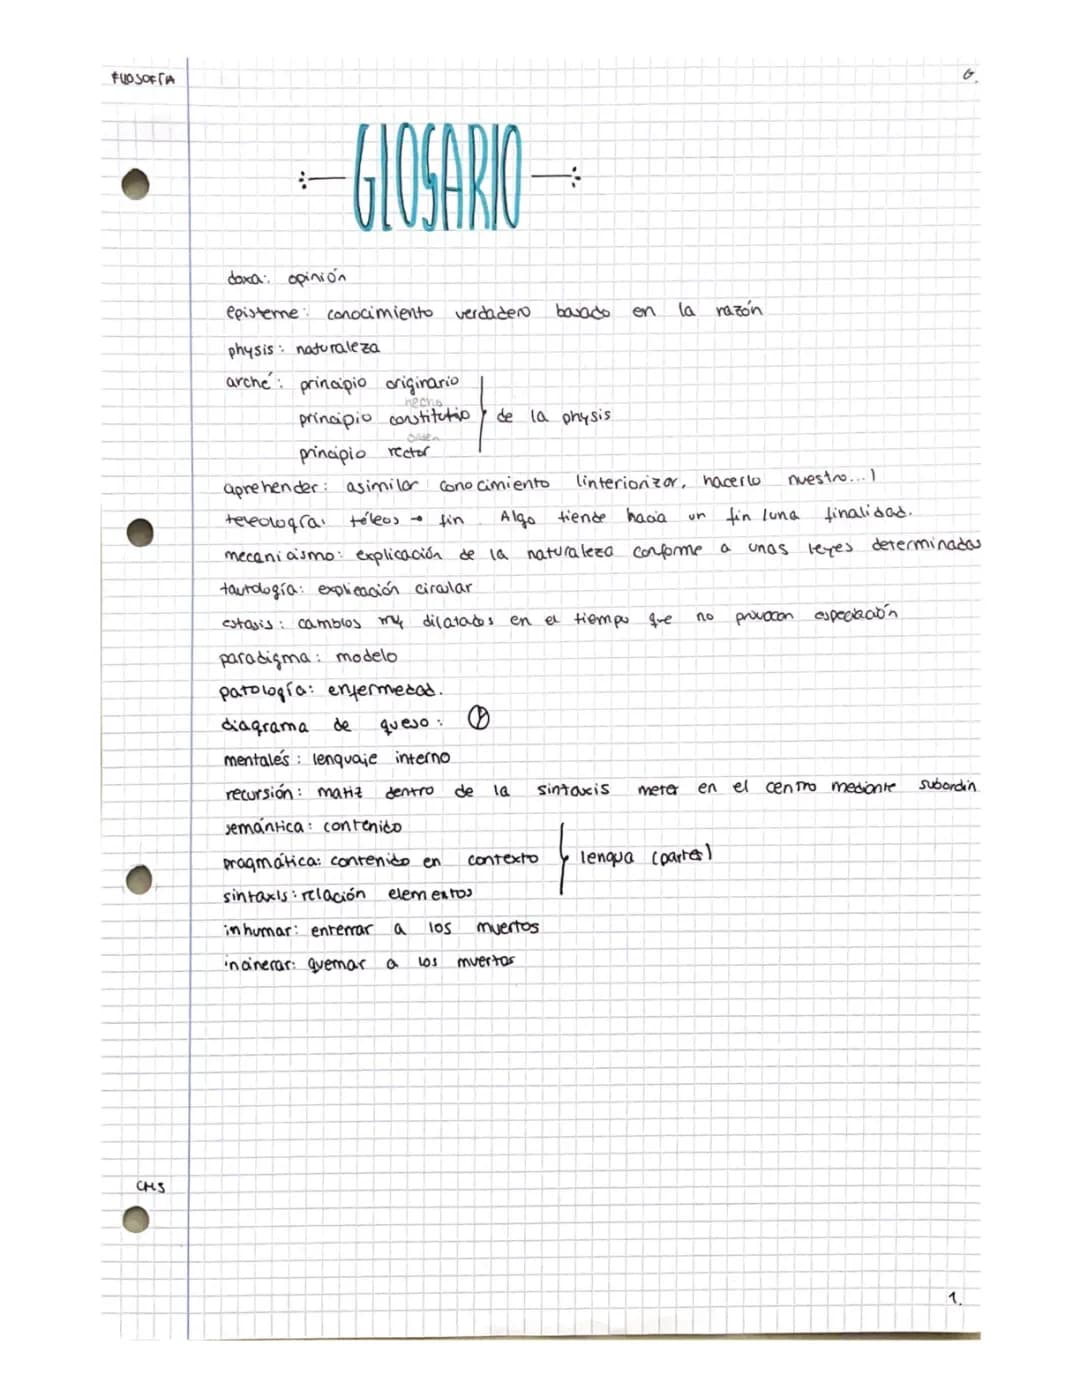 FILOSOFÍA
G.
GLOSARIO
doxa: opinión
episteme: conocimiento verdadero basado en la razón
physis: naturaleza
arché: principio originario
hecho
principio constitutio de la physis
principio rector
aprehender: asimilar conocimiento (interiorizar, hacerlo nuestro...)
teleología: téleos → fin Algo tiende hacia un fin /una finalidad.
mecanicismo: explicación de la naturaleza conforme a unas leyes determinadas
tautología: explicación circular
estasis: cambios muy dilatados en el tiempo que no provocan especiación
paradigma: modelo
patología: enfermedad.
diagrama de queso:
mentalés: lenguaje interno
recursión: matiz dentro de la sintaxis meter en el centro mediante subordin
semántica: contenido
pragmática: contenido en contexto lengua (partes)
sintaxis: relación elementos
inhumar: enterrar a los muertos
incinerar: quemar a los muertos
CMS
1.